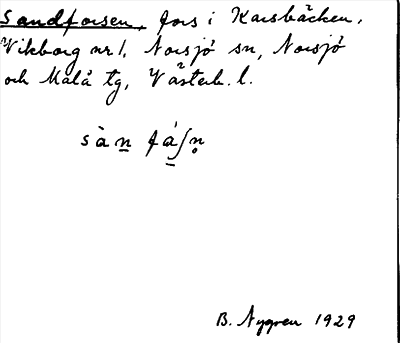 Sandforsen, fors i Karsbäcken,
Vikborg nr 1, Norsjö sn, Norsjö
och Malå tg, Västerb. l.
sàn fáʃn̥
B. Nygren 1929